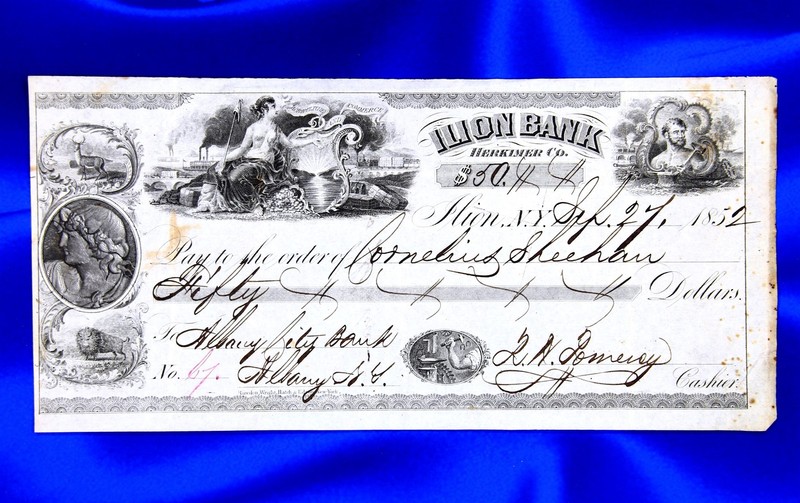 AGRICULTURE COMMERCE
ILION BANK
HERKIMER CO.
$50.
Ilion, N.Y. Sep. 27, 1852
Pay to the order of Cornelius Sheehan
Fifty Dollars.
To Albany City Bank
No. 67. Albany N.Y.
Pomeroy
Cashier.
Toppan